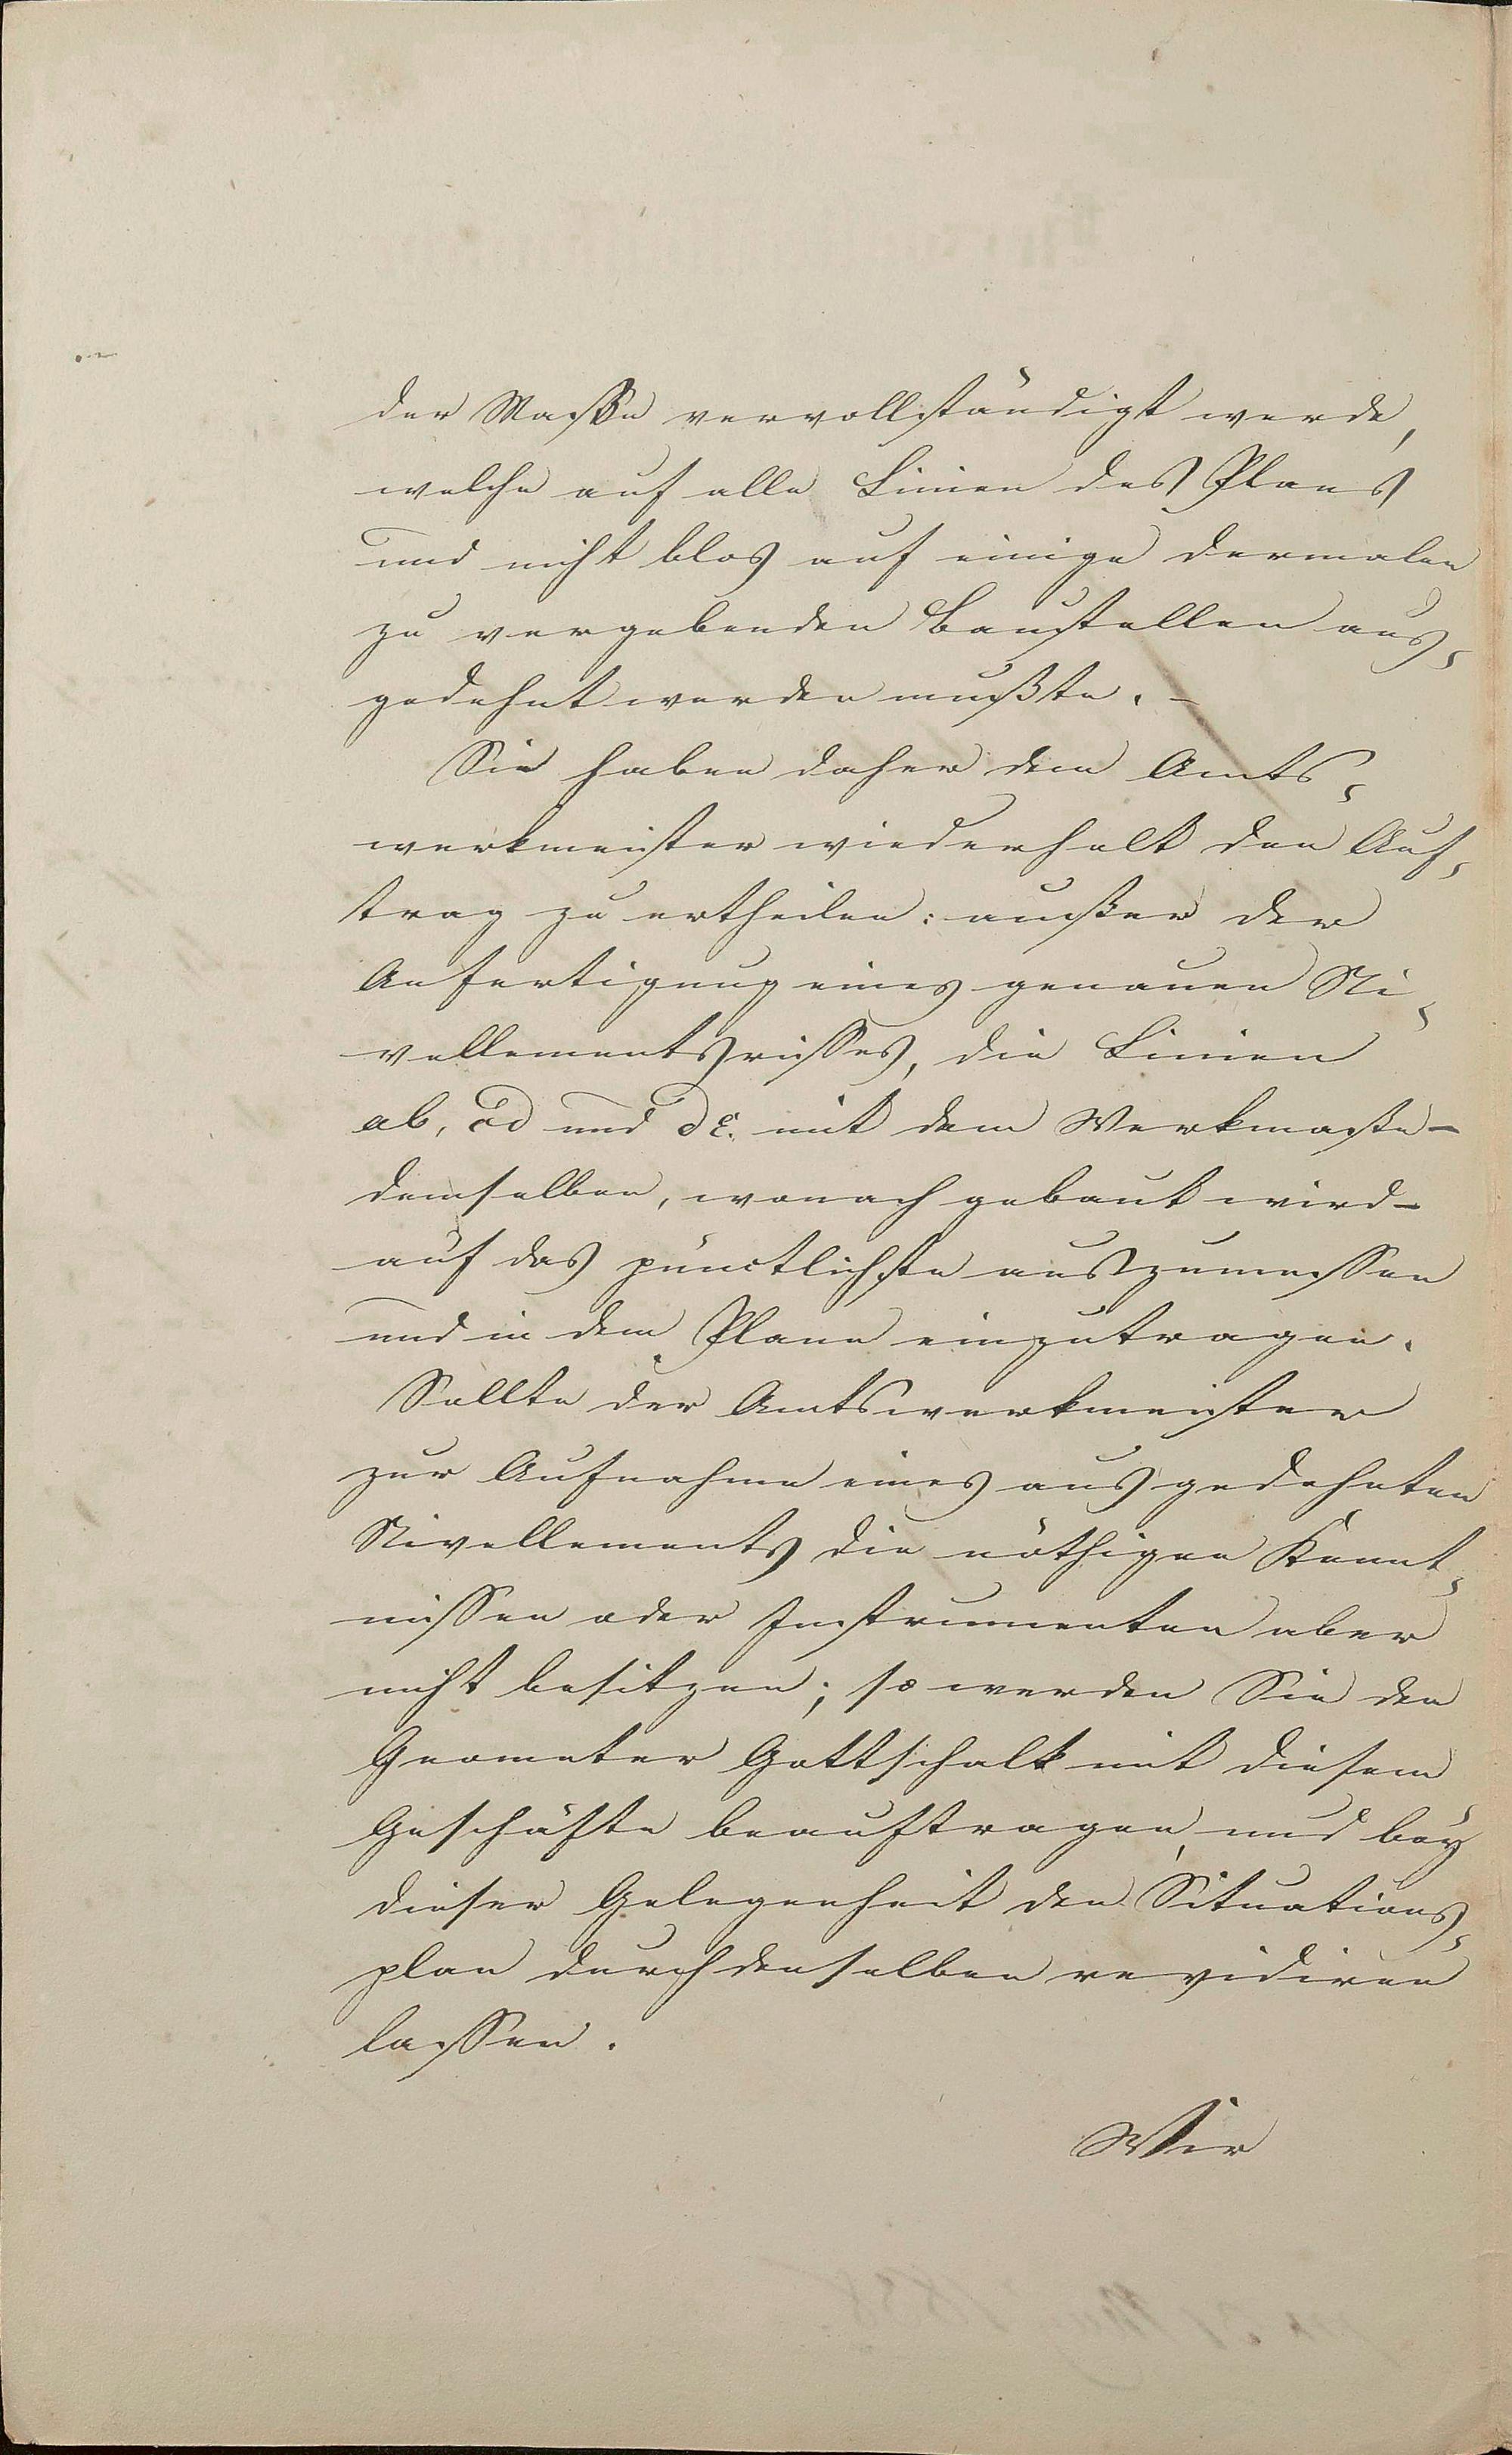 der Maße vervollständigt werde,
welche auf alle Linien des Plans
und nicht blos auf einige dermalen
zu vergebenden Baustellen aus¬
gedehnt werden mußte. –
Sie haben daher dem Amts¬
werkmeister wiederholt den Auf¬
trag zu ertheilen: außer der
Anfertigung eines genauen Ni¬
vellementsrisses, die Linien
ab, cd und de. mit dem Werkmaße –
demselben, wonach gebaut wird –
auf das pünctlichste auszumessen
und in dem Plane einzutragen.
Sollte der Amtswerkmeister
zur Aufnahme eines ausgedehnten
Nivellements die nöthigen Kennt¬
nissen oder Instrumenten aber
nicht besitzen; so werden Sie den
Geometer Gottschalk mit diesem
Geschäfte beauftragen, und bey
dieser Gelegenheit den Situations¬
plan durch denselben revidiren
lassen.
Wir